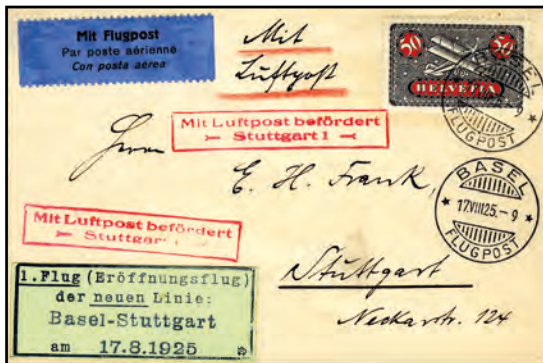 Mit Flugpost
Par poste aérienne
Con posta aerea
Mit
Luftpost
50 50
HELVETIA
BASEL
FLUGPOST
Mit Luftpost befördert
Stuttgart 1
Herrn
E. H. Frank,
BASEL
17.VIII.25.-9
FLUGPOST
Mit Luftpost befördert
Stuttgart
Stuttgart
Neckarstr. 124
1. Flug (Eröffnungsflug)
der neuen Linie:
Basel-Stuttgart
am 17.8.1925